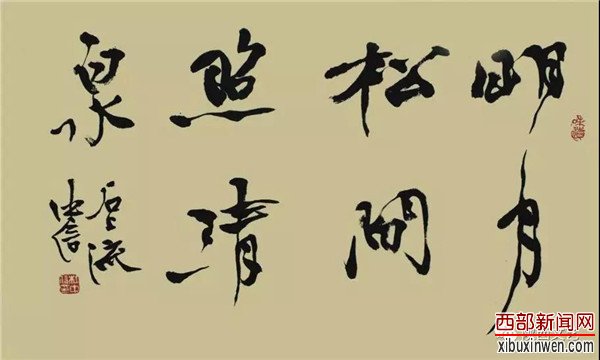 明月
松間
照清
泉
石上流
西部新闻网
xibuxinwen.com